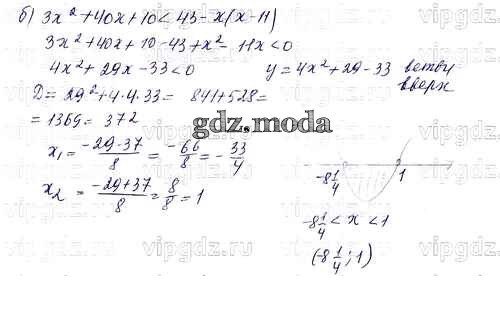 б) 3x² + 40x + 10 < 43 - x(x - 11)
3x² + 40x + 10 - 43 + x² - 11x < 0
4x² + 29x - 33 < 0
y = 4x² + 29 - 33 ветви вверх
D = 29² + 4·4·33 = 841 + 528 =
= 1369 = 37²
gdz.moda
x₁ = (-29-37)/8 = -66/8 = -33/4
x₂ = (-29+37)/8 = 8/8 = 1
-8 1/4
1
-8 1/4 < x < 1
(-8 1/4; 1)
vipgdz.ru